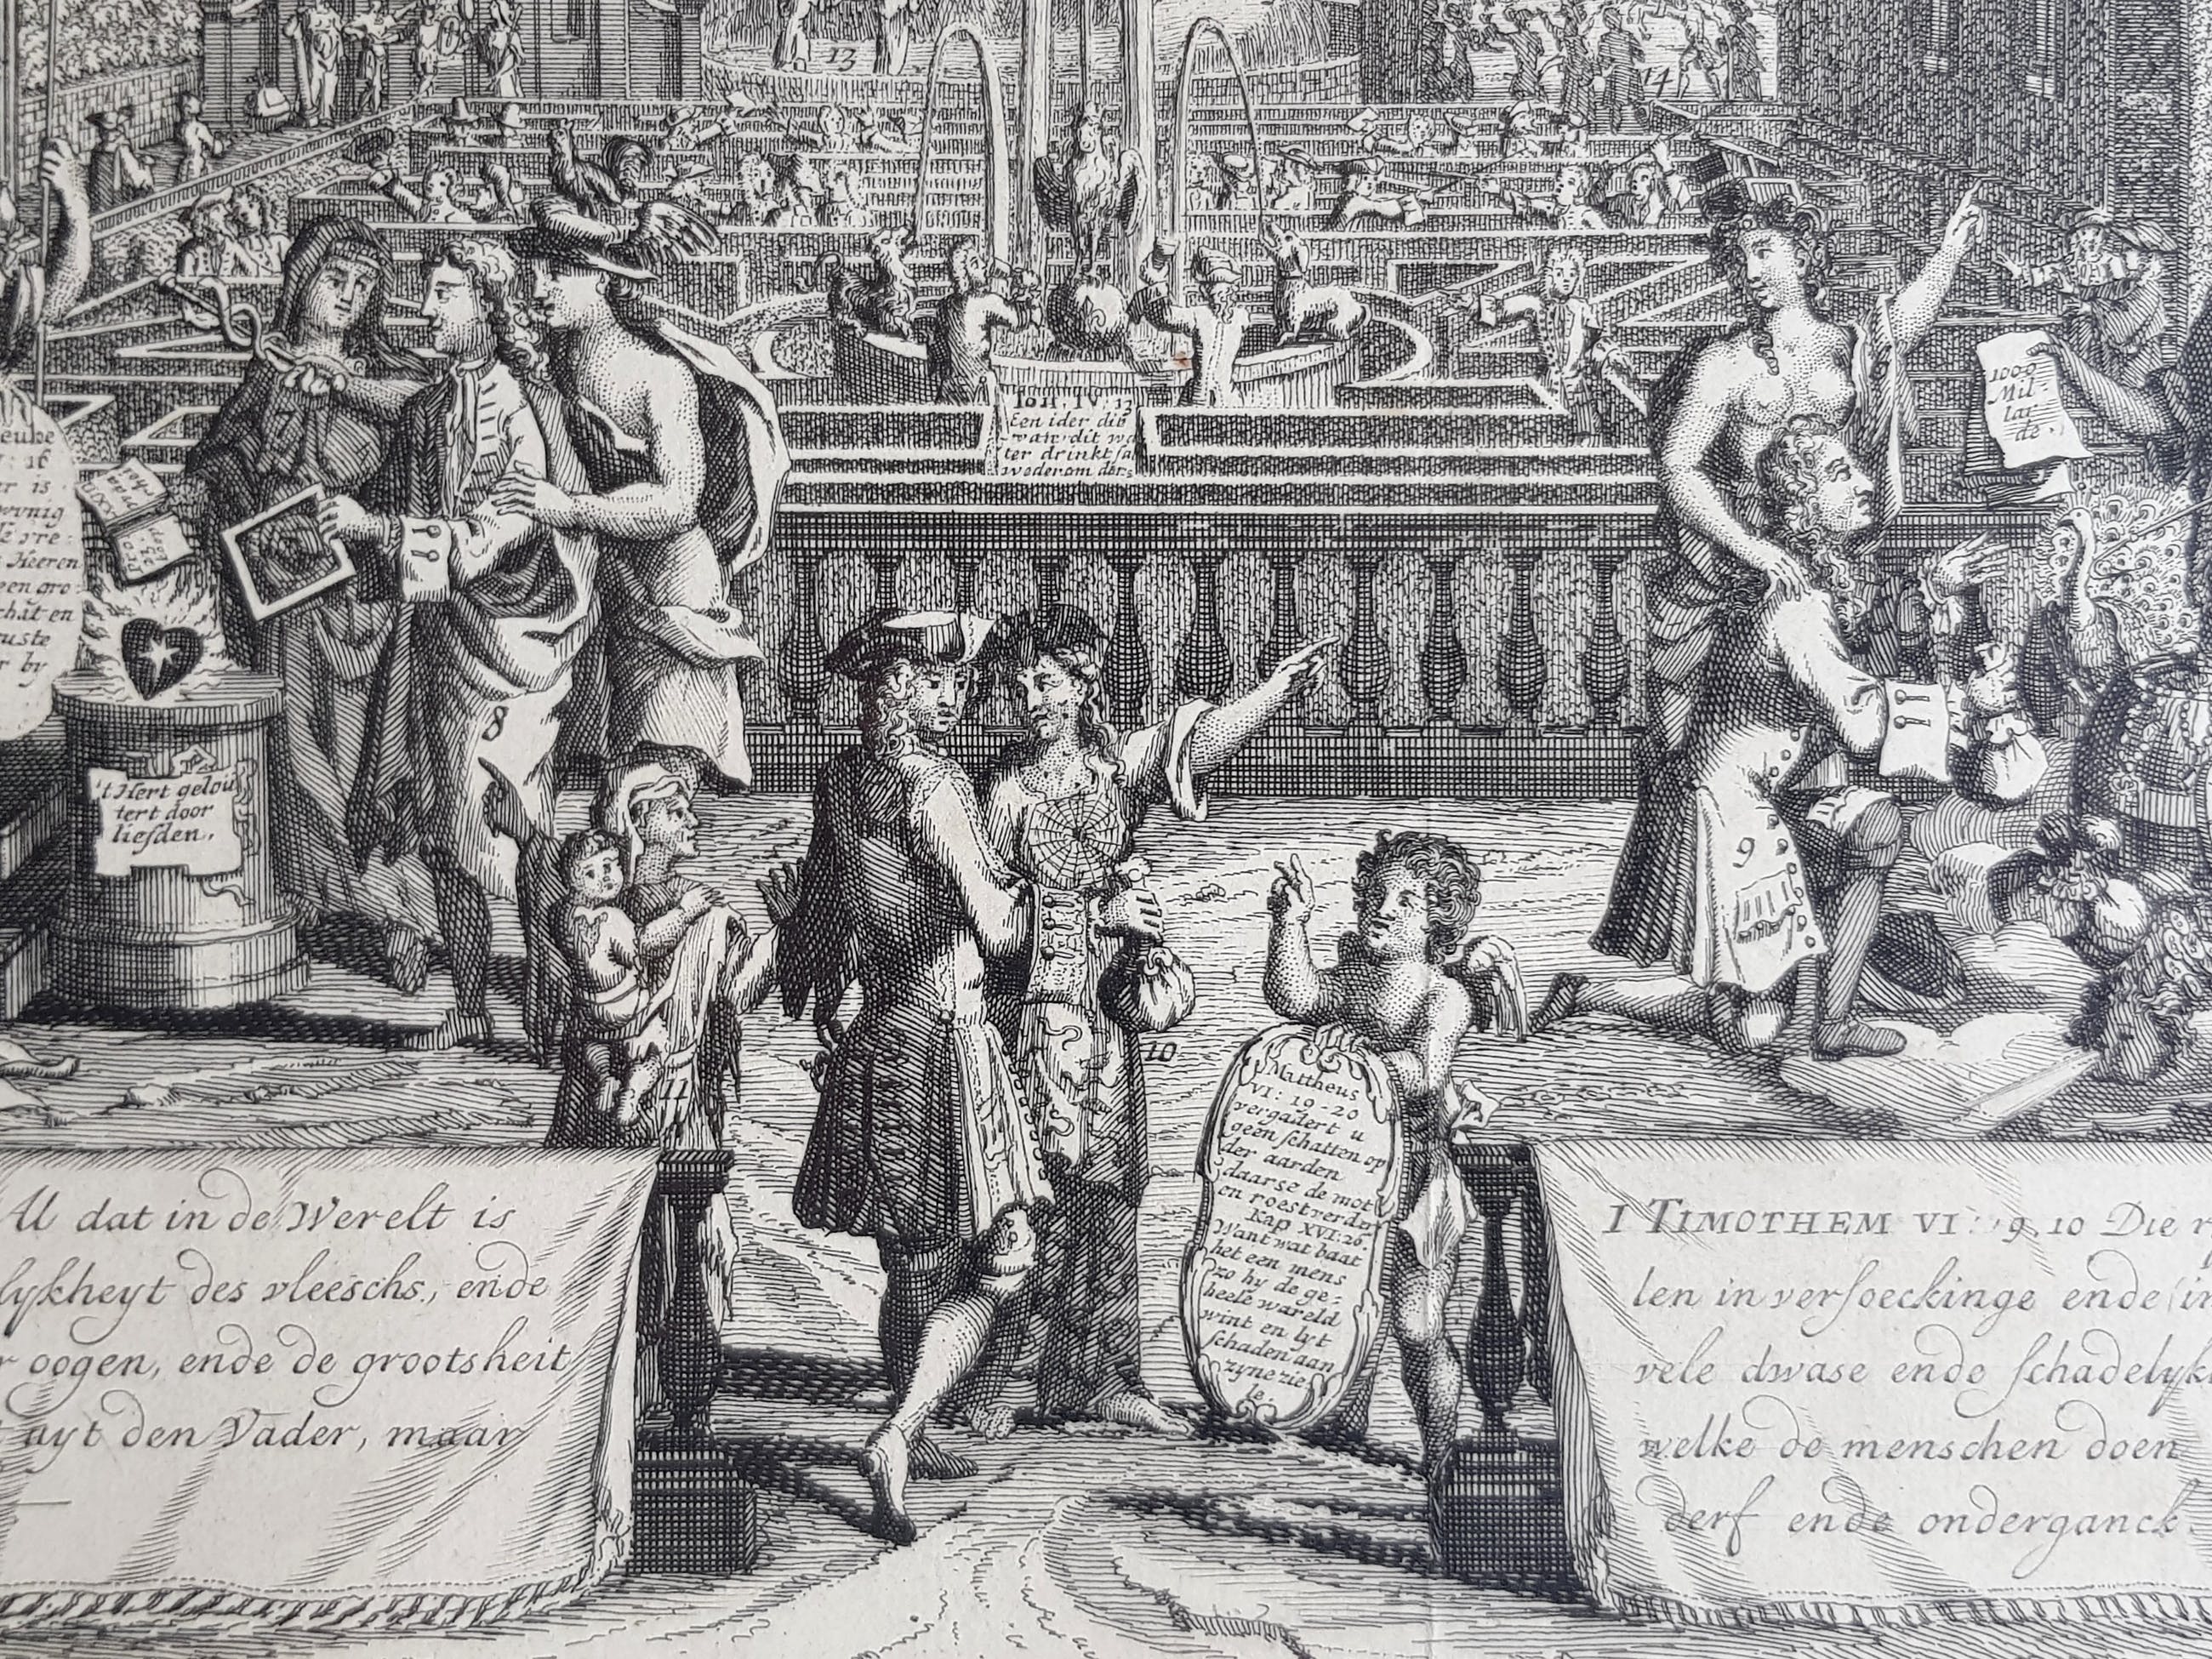 13
14
1000
Mil
lar
de.
IOH. IV: 13
Een ider die
van dit wa
ter drinkt sa
wederom dors
: 16
er is
weynig
vre:
Heeren
een gro
schat en
ruste
r by
8
't Hert gelou
tert door
liefden.
9
10
11
Mattheus
VI: 19-20
vergadert u
geen schatten op
der aarden
daarse de mot
en roest verder
Kap XVI:26.
Want wat baat
het een mens
zo hy de ge-
heele wareld
wint en lyt
schaden aan
zyne zie
le
Al dat in de Werelt is
lykheyt des vleeschs, ende
r oogen, ende de grootsheit
uyt den Vader, maar
I TIMOTHEM VI: 9, 10 Die
len in versoeckinge ende
vele dwase ende schadelyk
welke de menschen doen
derf ende onderganck.